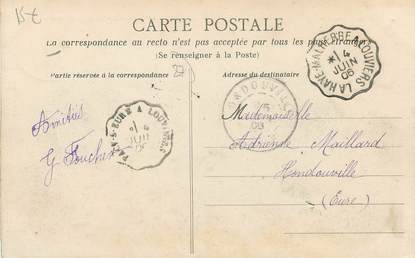 15€
CARTE POSTALE
La correspondance au recto n'est pas acceptée par tous les pays étrangers
(Se renseigner à la Poste)
Partie réservée à la correspondance
27
Adresse du destinataire
LA HAYE-MALHERBE A LOUVIERS
4
JUIN
06
HONDOUVILLE
5
06
EURE A LOUVIERS
4
JUIN
06
Amitiés
G Foucher
Mademoiselle
Adrienne Maillard
Hondouville
(Eure)